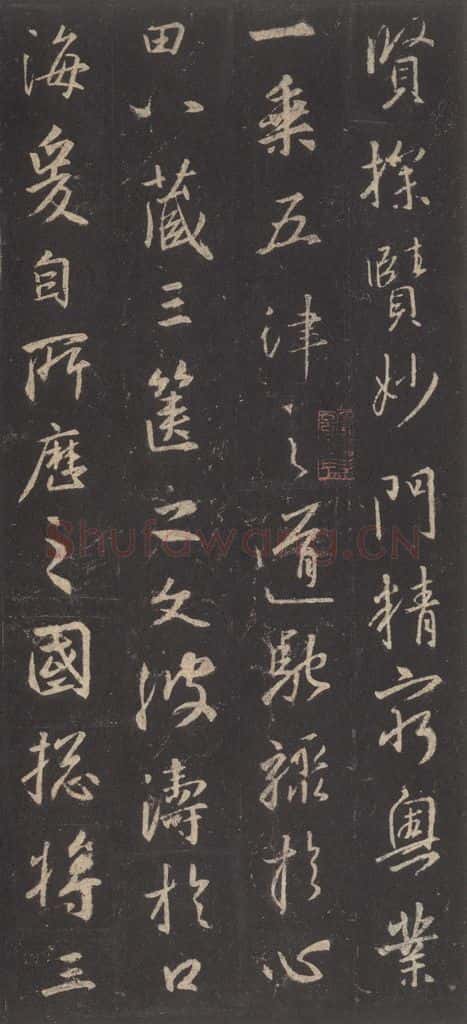 賢探賾妙門精窮奧業
一乘五律之道馳驟於心
田八藏三篋之文波濤於口
海爰自所歷之國揔將三
Shufawang.CN